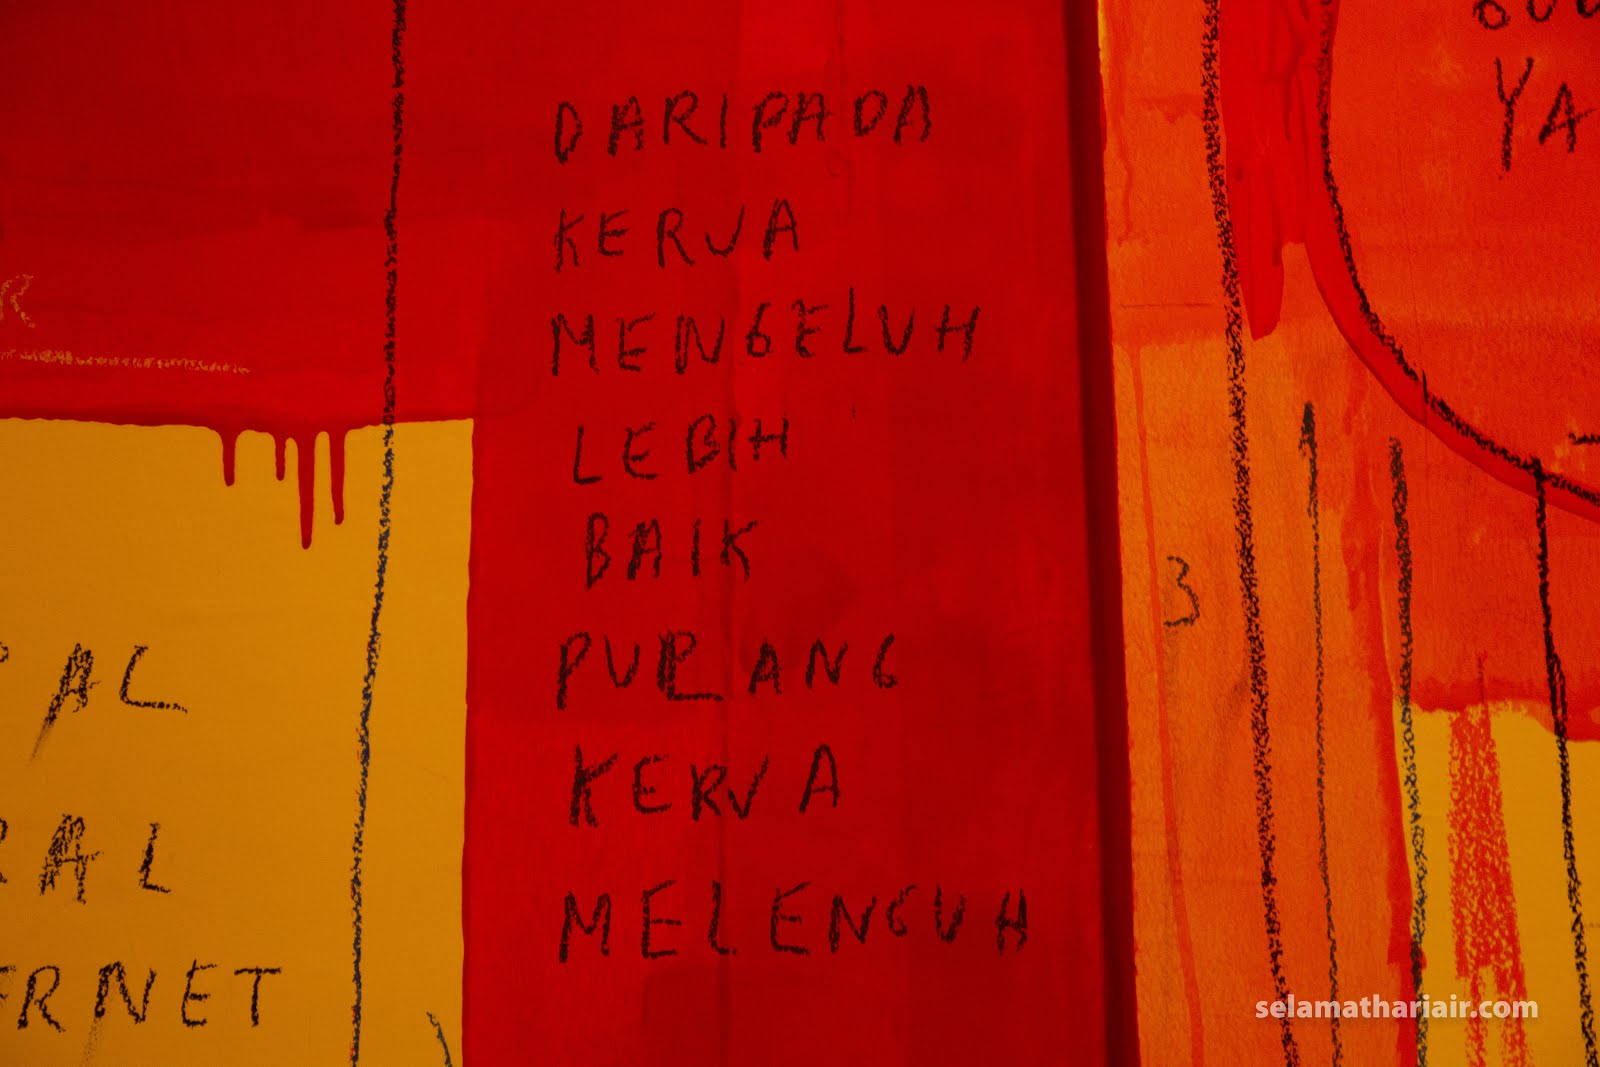 DARIPADA
KERJA
MENGELUH
LEBIH
BAIK
PULANG
KERJA
MELENGUH
YA
3
AL
RAL
ERNET
selamathariair.com